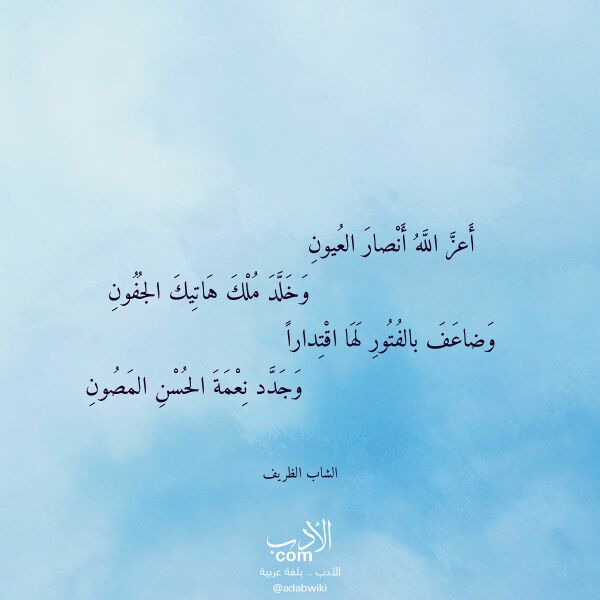 أَعزَّ اللَّهُ أَنْصارَ العُيونِ
وَخَلَّدَ مُلْكَ هَاتِيكَ الجُفُونِ
وَضاعَفَ بالفُتُورِ لَهَا اقْتِداراً
وَجَدَّد نِعْمَةَ الحُسْنِ المَصُونِ
الشاب الظريف
الأدب
com
الأدب .. بلغة عربية
@adabwiki